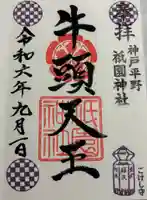 奉拝
神戸平野
祇園神社
牛頭天王
令和六年九月一日